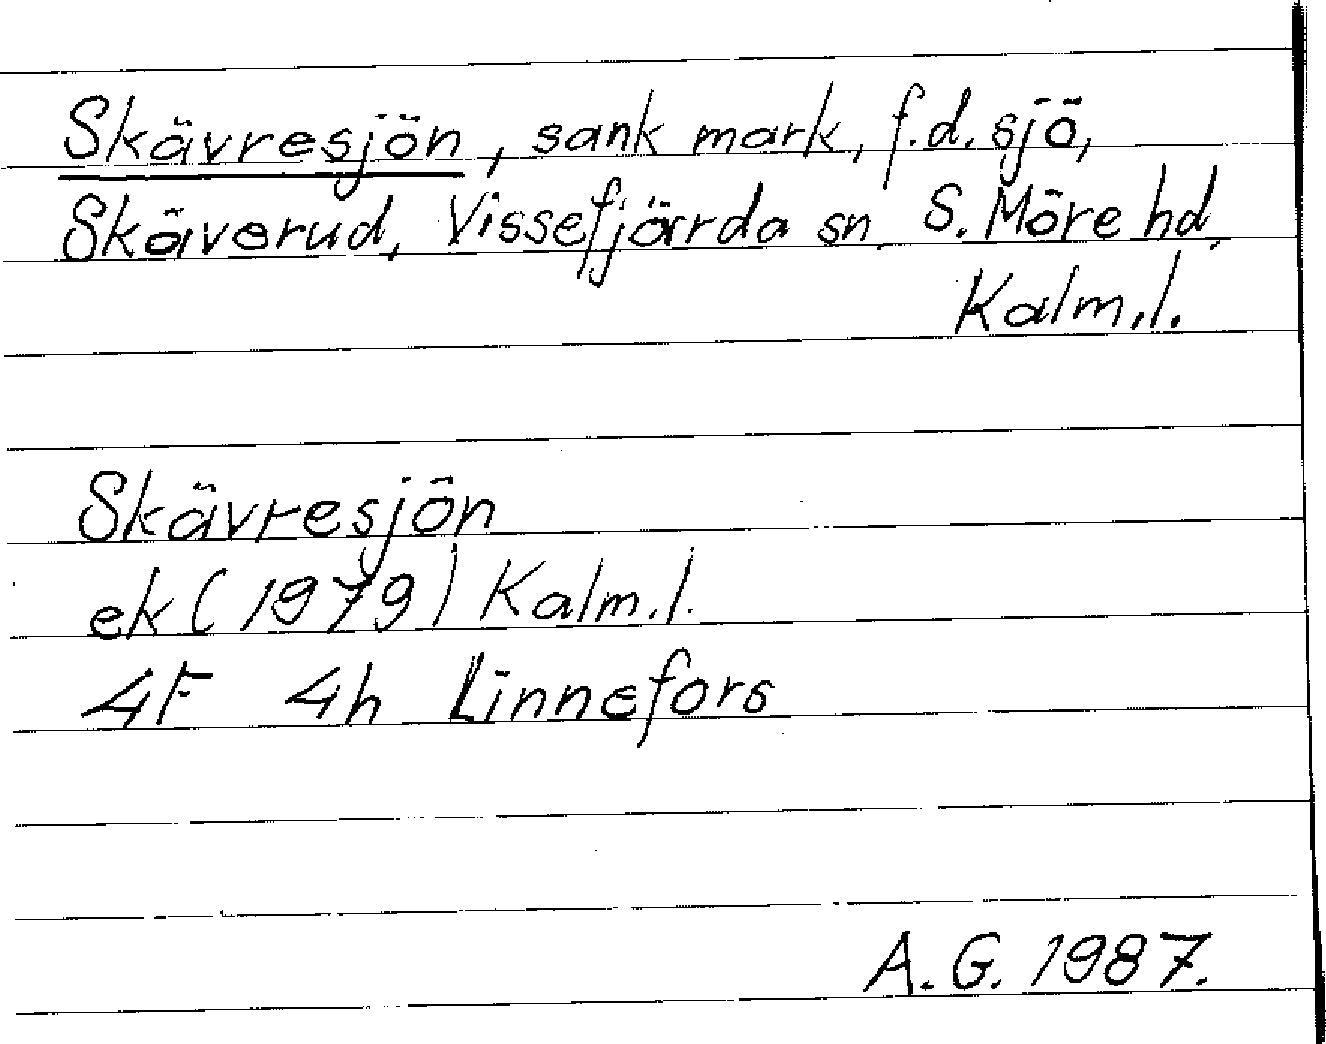 Skävresjön, sank mark, f.d. sjö,
Skäverud, Vissefjärda sn. S. Möre hd,
Kalm.l.
Skävresjön
ek (1979) Kalm.l.
4F 4h Linnefors
A.G. 1987.